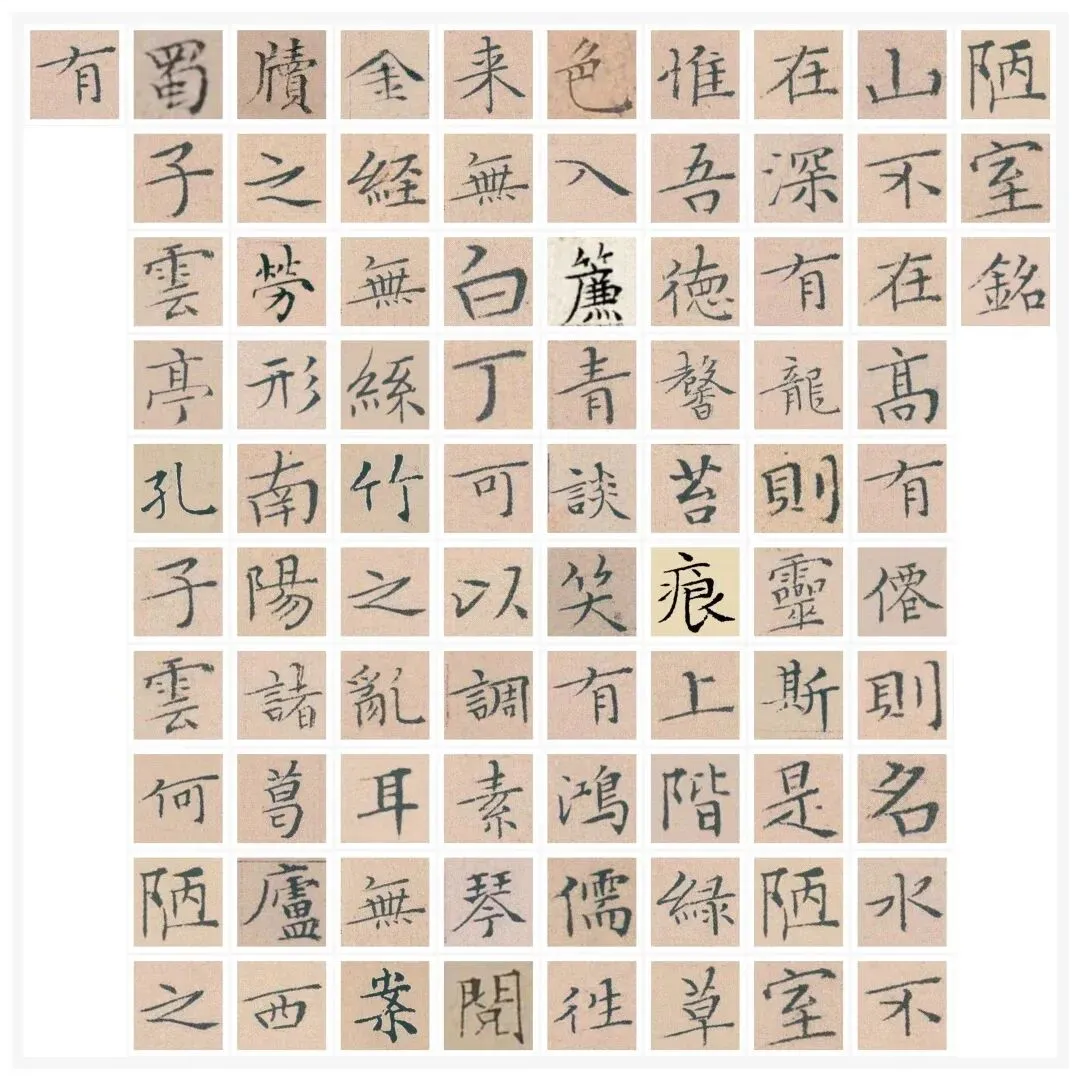 陋室銘
山不在髙有僊則名水不
在深有龍則靈斯是陋室
惟吾徳馨苔痕上階緑草
色入簾青談笑有鴻儒徃
来無白丁可以調素琴閲
金経無絲竹之亂耳無案
牘之勞形南陽諸葛廬西
蜀子雲亭孔子雲何陋之
有